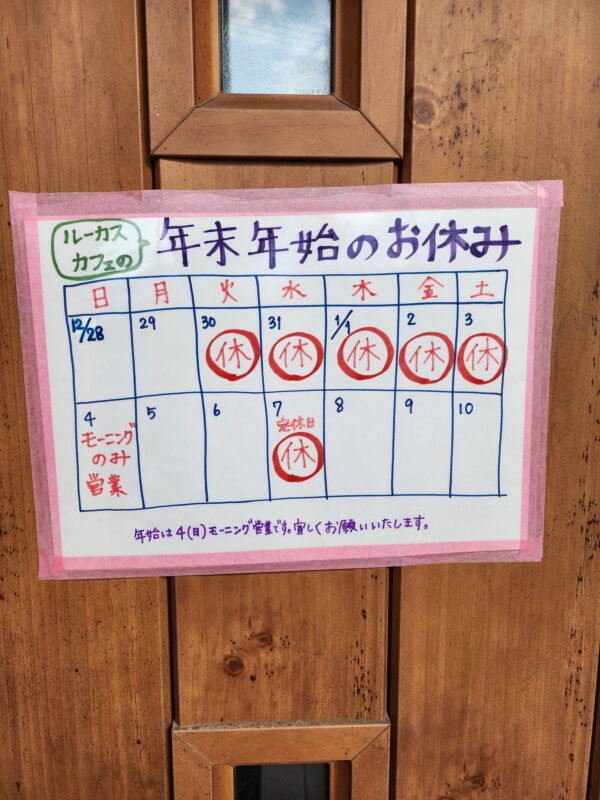 ルーカス
カフェの
年末年始のお休み
日 月 火 水 木 金 土
12/28 29 30 31 1/1 2 3
休 休 休 休 休
4 5 6 7 8 9 10
モーニング
のみ
営業
定休日
休
年始は4(日)モーニング営業です。宜しくお願いいたします。